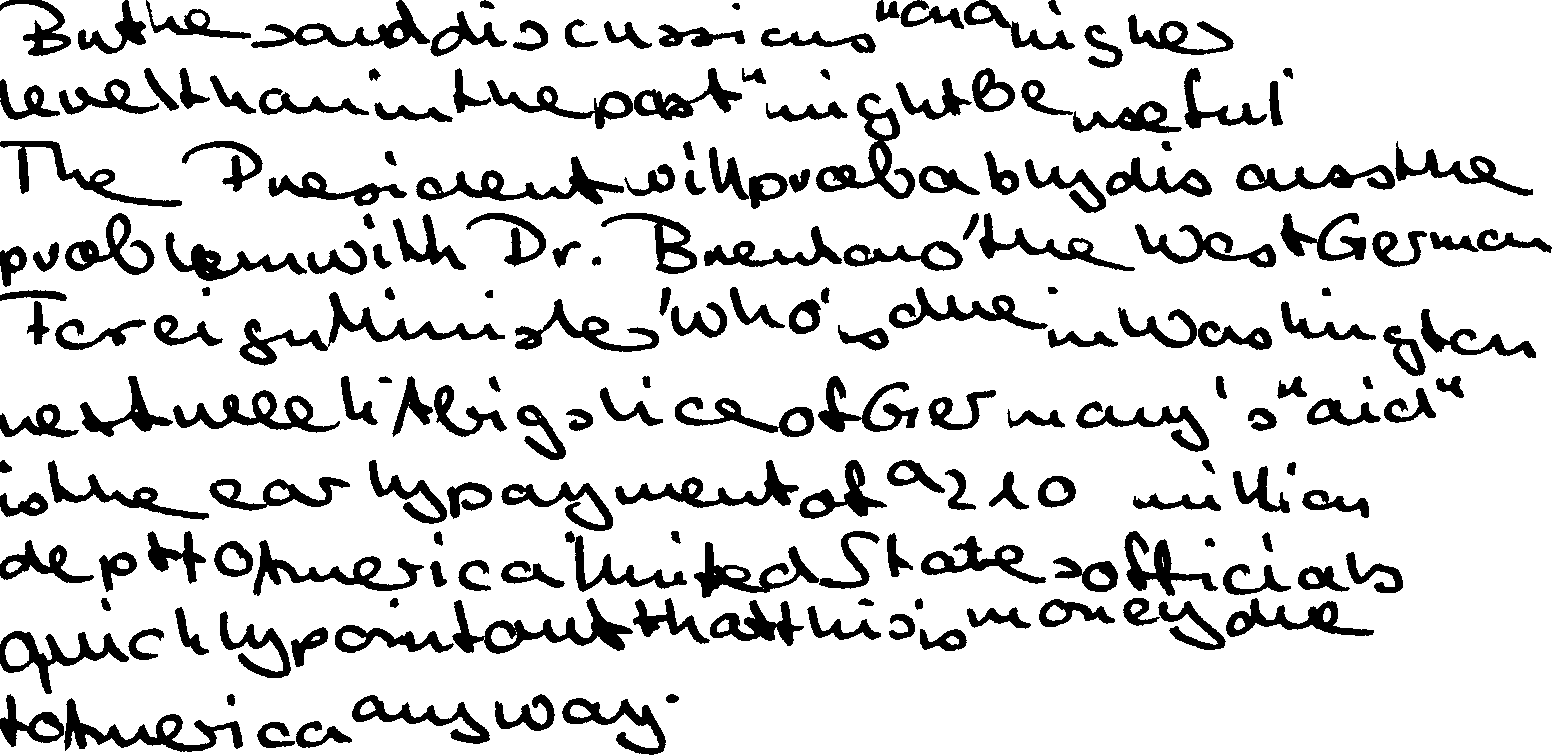 But he said discussions "on a higher
level than in the past" might be useful
The President will probably discuss the
problem with Dr. Brentano, the West German
Foreign Minister, who is due in Washington
next week. A big slice of Germany's "aid"
is the early payment of a 210 million
dept to America. United States officials
quickly point out that this is money due
to America anyway.